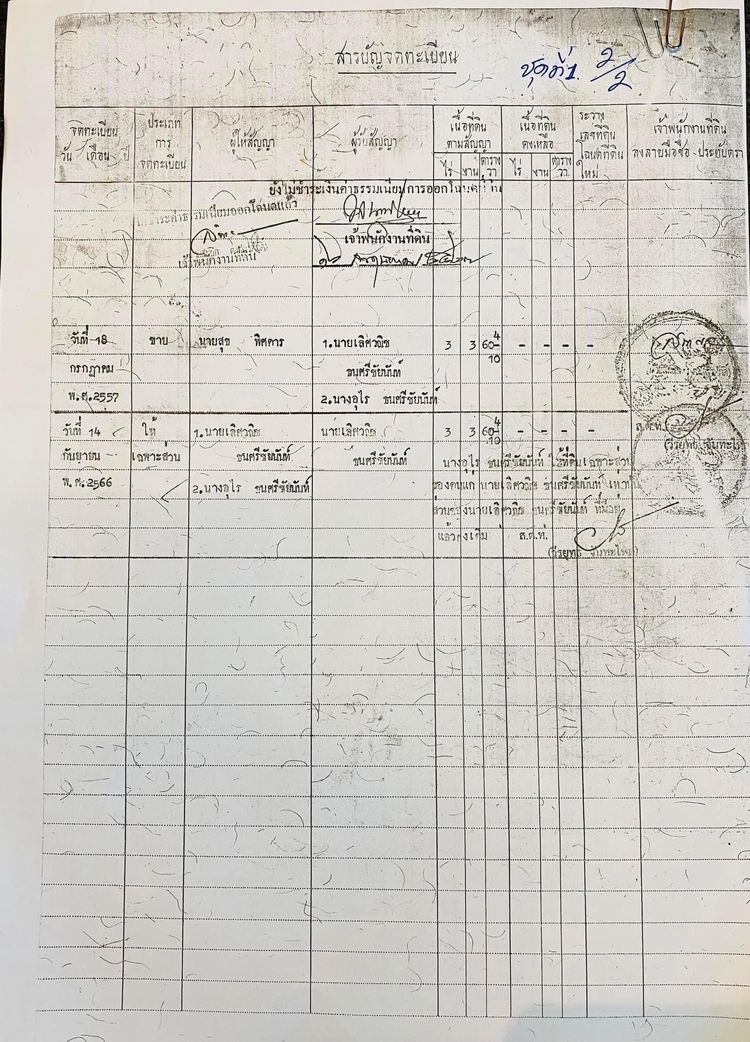 สารบัญจดทะเบียน
ชุดที่1. 2/2
จดทะเบียน
วัน เดือน ปี
ประเภท
การ
จดทะเบียน
ผู้ให้สัญญา
ผู้รับสัญญา
เนื้อที่ดิน
ตามสัญญา
ไร่ งาน ตาราง
วา
เนื้อที่ดิน
คงเหลือ
ไร่ งาน ตาราง
วา
ระวาง
เลขที่ดิน
โฉนดที่ดิน
ใหม่
เจ้าพนักงานที่ดิน
ลงลายมือชื่อ ประทับตรา
ยังไม่ชำระเงินค่าธรรมเนียมการออกโฉนด
ชำระค่าธรรมเนียมออกโฉนดแล้ว
เจ้าพนักงานที่ดิน
เจ้าพนักงานที่ดิน
วันที่ 18 ขาย นายสุข พิศดาร 1.นายเลิศวณิช 3 3 60 4/10 - - - -
กรกฎาคม ธนศรีชัยนันท์
พ.ศ.2557 2.นางอุไร ธนศรีชัยนันท์
วันที่ 14 ให้ 1.นายเลิศวณิช นายเลิศวณิช 3 3 60 4/10 - - - - ส.ต.ท.
(วีรยุทธ จันทะไทย)
กันยายน เฉพาะส่วน ธนศรีชัยนันท์ ธนศรีชัยนันท์ นางอุไร ธนศรีชัยนันท์ ให้ที่ดินเฉพาะส่วน
พ.ศ.2566 2.นางอุไร ธนศรีชัยนันท์ ของตนแก่ นายเลิศวณิช ธนศรีชัยนันท์
ส่วนของนายเลิศวณิช ธนศรีชัยนันท์ ที่มีอยู่
แล้วคงเดิม ส.ต.ท.
(วีรยุทธ จันทะไทย)